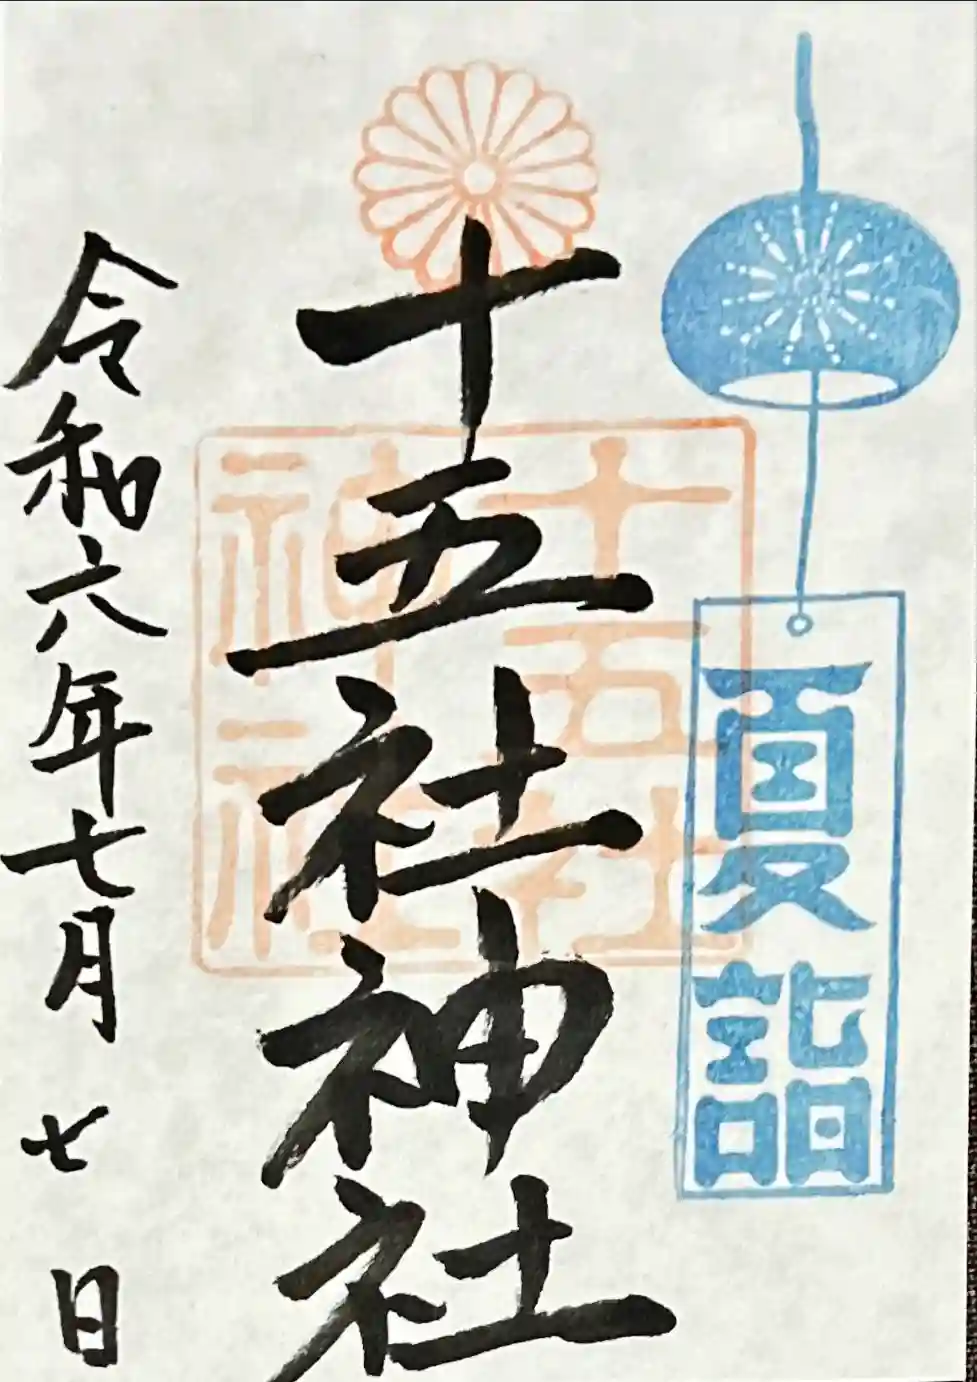 夏詣
十五社神社
十五社
神社
令和六年七月七日